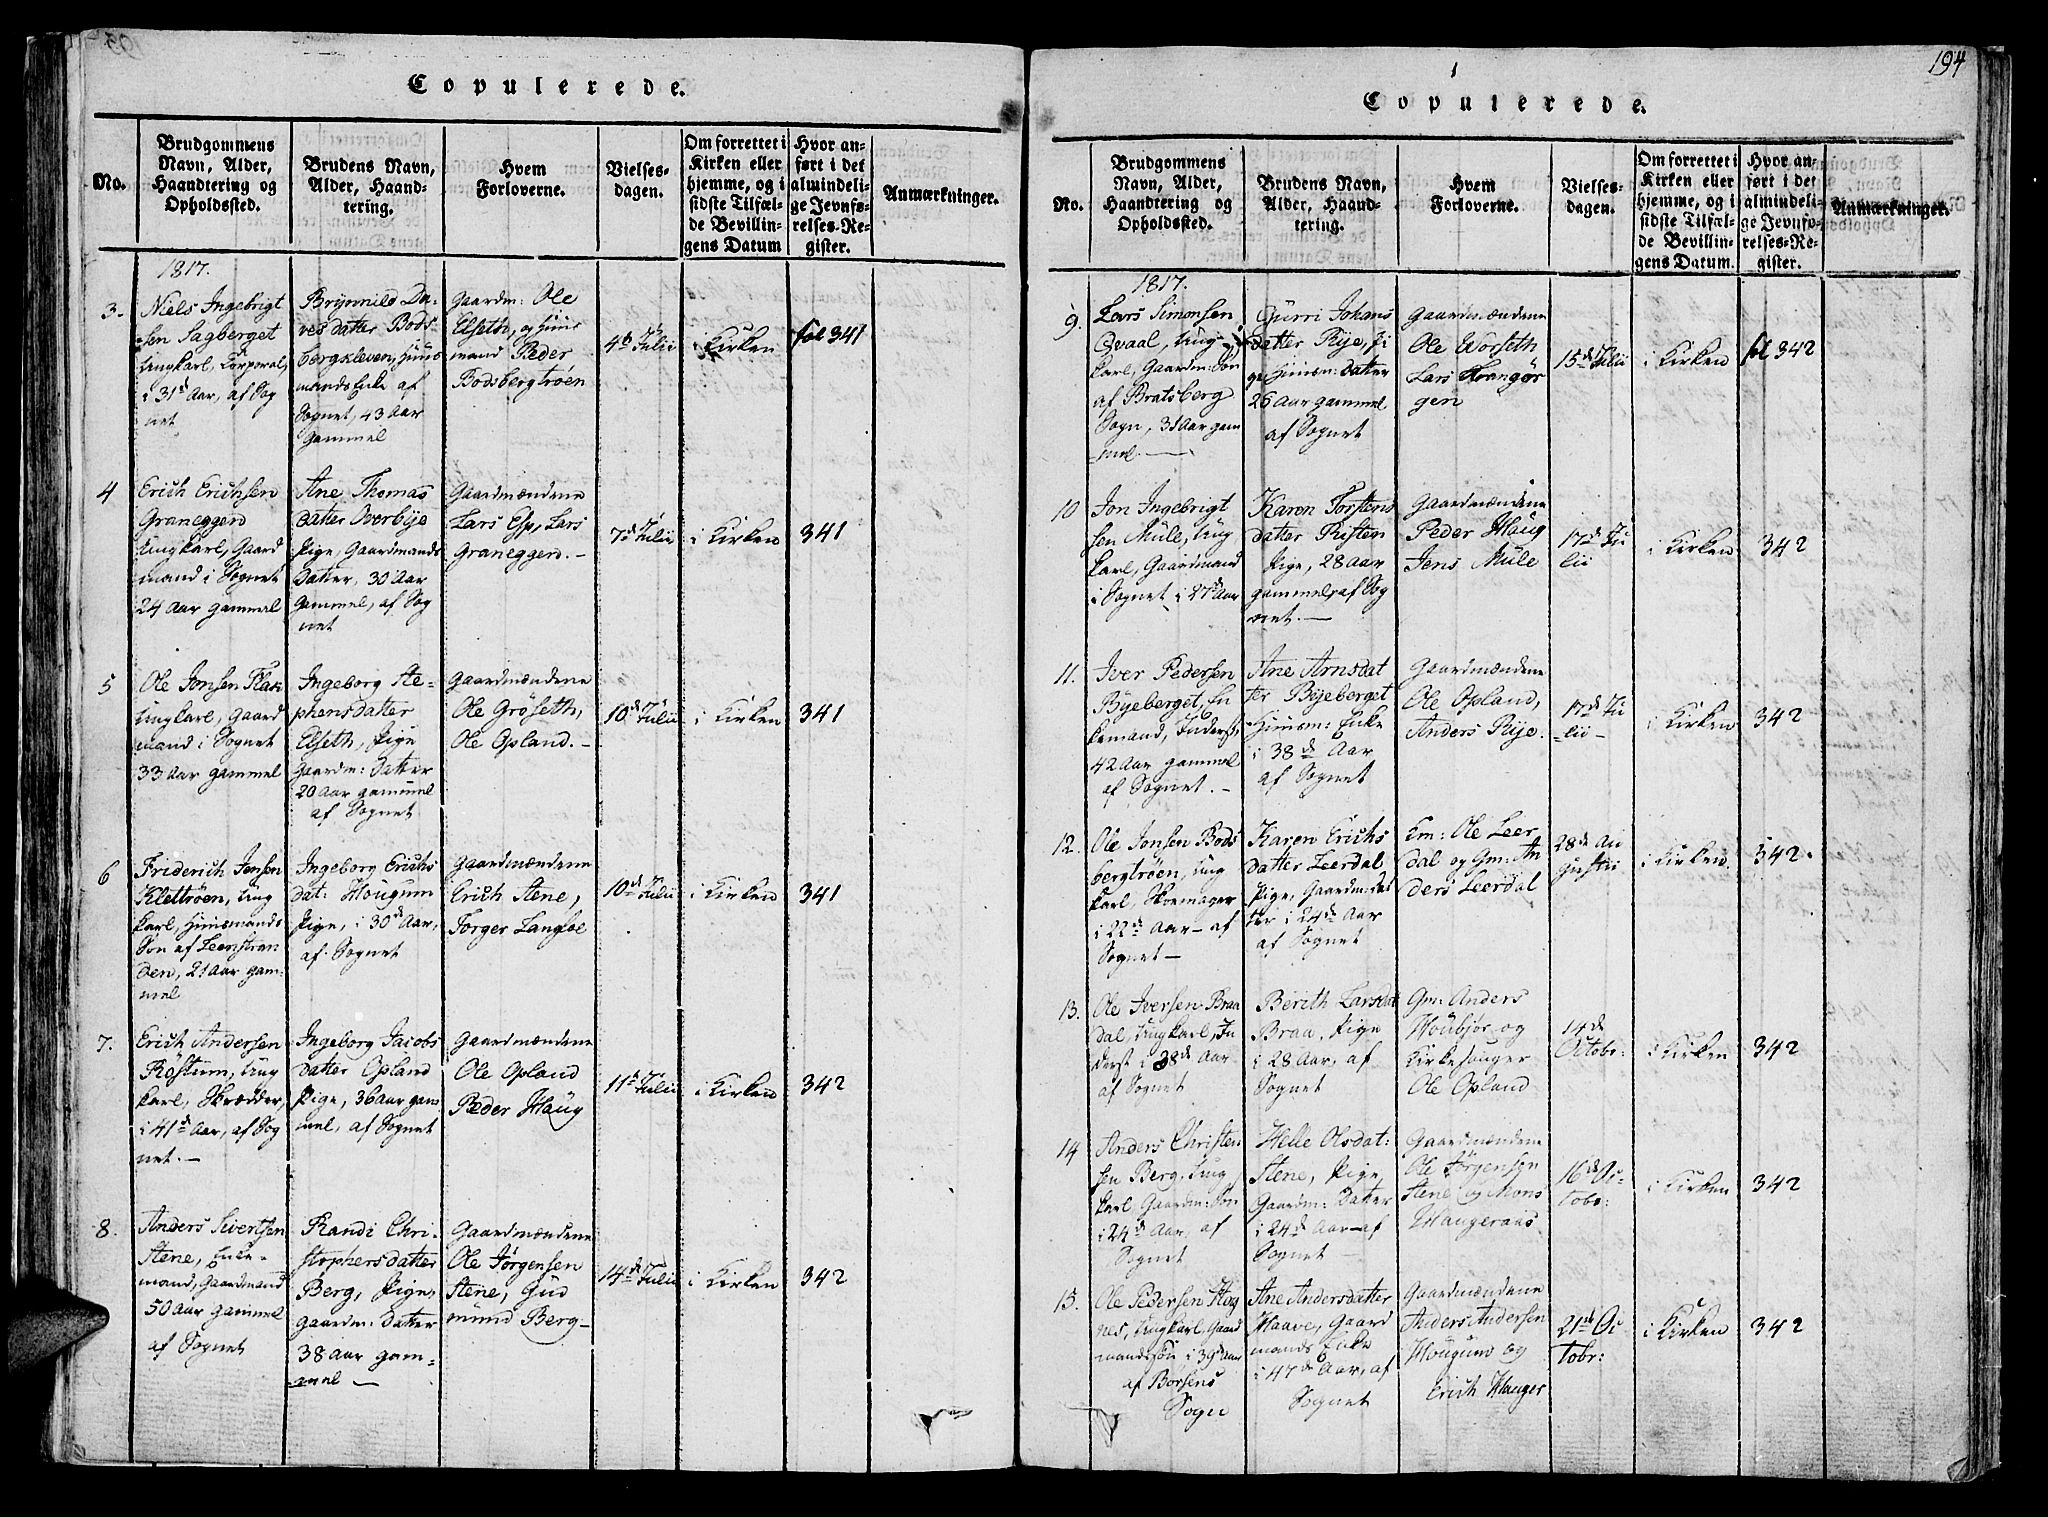 Copulerede.
No.
Brudgommens
Navn, Alder,
Haandtering og
Opholdssted.
Brudens Navn,
Alder, Haand-
tering.
Hvem
Forloverne.
Vielses-
dagen.
Om forrettet i
Kirken eller
hjemme, og i
sidste Tilfæl-
de Bevillin-
gens Datum
Hvor an-
ført i det
almindeli-
ge Jevnfø-
relses-Re-
gister.
Anmærkninger.
1817.
3.
Niels Ingebrigt
sen Sagberget
Ungkarl, Corporal,
i 31d Aar, af Sog
net
Brynnild Da-
vesdatter Bods-
bergskleven, Huus
mands Enke af
Sognet, 43 Aar
gammel
Gaardm: Ole
Elseth, og Huus
mand Peder
Bodsbergtrøen
4d Julii
i Kirken
fol 341
4
Erich Erichsen
Graneggen
Ungkarl, Gaard
mand i Sognet
24 Aar gammel
Ane Thomas
datter Overbye
Pige, Gaardmands
Datter, 30 Aar
gammel, af Sog
net
Gaardmændene
Lars Esp, Lars
Graneggen.-
7d Julii
i Kirken
341
5
Ole Jonsen Flak
Ungkarl, Gaard
mand i Sognet
33 Aar gammel
Ingeborg Ste-
phensdatter
Elseth, Pige
Gaardm: Datter
20 Aar gammel
af Sognet
Gaardmændene
Ole Grøseth,
Ole Opland.-
10d Julii
i Kirken
341
6
Friderich Jensen
Klettrøen, Ung
karl, Huusmands
Søn af Leenstran
den, 21 Aar gam-
mel
Ingeborg Erichs
dat: Hougum
Pige, i 30d Aar,
af Sognet
Gaardmændene
Erich Stene,
Torger Langløe
10d Julii
i Kirken
341
7.
Erich Andersen
Røstum, Ung
karl, Skrædder,
i 41d Aar, af Sog
net.-
Ingeborg Jacobs
datter Opland
Pige, 36 Aar gam
mel, af Sognet
Gaardmændene
Ole Opland
Peder Haug
11d Julii
i Kirken
342
8.
Anders Sivertsen
Stene, Enke-
mand, Gaardmand
50 Aar gammel
af Sognet
Randi Chri-
stophersdatter
Berg, Pige,
Gaardm: Datter
38 Aar gam-
mel -
Gaardmændene
Ole Jørgensen
Stene, Gud
mund Berg-
14d Julii
i Kirken
342
194
Copulerede.
No.
Brudgommens
Navn, Alder,
Haandtering og
Opholdssted.
Brudens Navn,
Alder, Haand-
tering.
Hvem
Forloverne.
Vielses-
dagen.
Om forrettet i
Kirken eller
hjemme, og i
sidste Tilfæl-
de Bevillin-
gens Datum.
Hvor an-
ført i det
almindeli-
ge Jevnfø-
relses-Re-
gister.
Anmærkninger.
1817.
9.
Lars Simonsen
Qvaal, Ung-
karl, Gaardm: Søn
af Bratsberg
Sogn, 31 Aar gam
mel.
Gurri Johans
datter Rye, Pi
ge Huusm: Datter
26 Aar gammel
af Sognet
Gaardmændene
Ole Worseth
Lars
gen
15d Julii
i Kirken
fol 342
10
Jon Ingebrigt
sen Mule, Ung
karl, Gaardmand
i Sognet i 27d Aar
Karen Torstens
datter Risten
Pige, 28 Aar
gammel, af Sog
net.-
Gaardmændene
Peder Haug
Jens Mule
17d Ju
lii
i Kirken
342
11.
Iver Pedersen
Byeberget, En
kemand, Inderst,
42 Aar gammel
af Sognet.-
Ane Arnsdat
ter Byeberget
Huusm: Enke
i 38d Aar
af Sognet
Gaardmændene
Ole Opland,
Anders Rye.
17d Ju
lii-
i Kirken
342
12.
Ole Jonsen Bods
bergtrøen, Ung
karl, Skoemager
i 22d Aar - af
Sognet-
Karen Erichs
datter Leerdal
Pige, Gaardm: dat
ter i 24d Aar
af Sognet
Em: Ole Leer
dal og Gm: An
ders Leerdal
28d Au
gustii
i Kirken
342.
13.
Ole Iversen Braa
dal, Ungkarl, In
derst i 38d Aar
af Sognet
Berith Larsdat
Braa, Pige
i 28 Aar, af
Sognet
Gm: Anders
Houbjør og
Kirkesanger
Ole Opland
14d
Octobr:
i Kirken
342
14
Anders Christen
sen Berg, Ung
karl, Gaardm: Søn
i 24d Aar, af
Sognet
Helle Olsdat:
Stene, Pige,
Gaardm: Datter
i 24d Aar-af
Sognet
Gaardmændene
Ole Jørgensen
Stene og Mons
Haugeraas
16d Oc-
tobr:
i Kirken
342
15.
Ole Pedersen Hog
nes, Ungkarl Gaard
mandssøn i 39d Aar
af Børsens
Sogn
Ane Andersdatter
Haave, Gaard
mands Enke
i 47d Aar, af
Sognet
Gaardmændene
Anders Andersen
Hougum og
Erich Hauger
21d Oc
tobr:
i Kirken
342